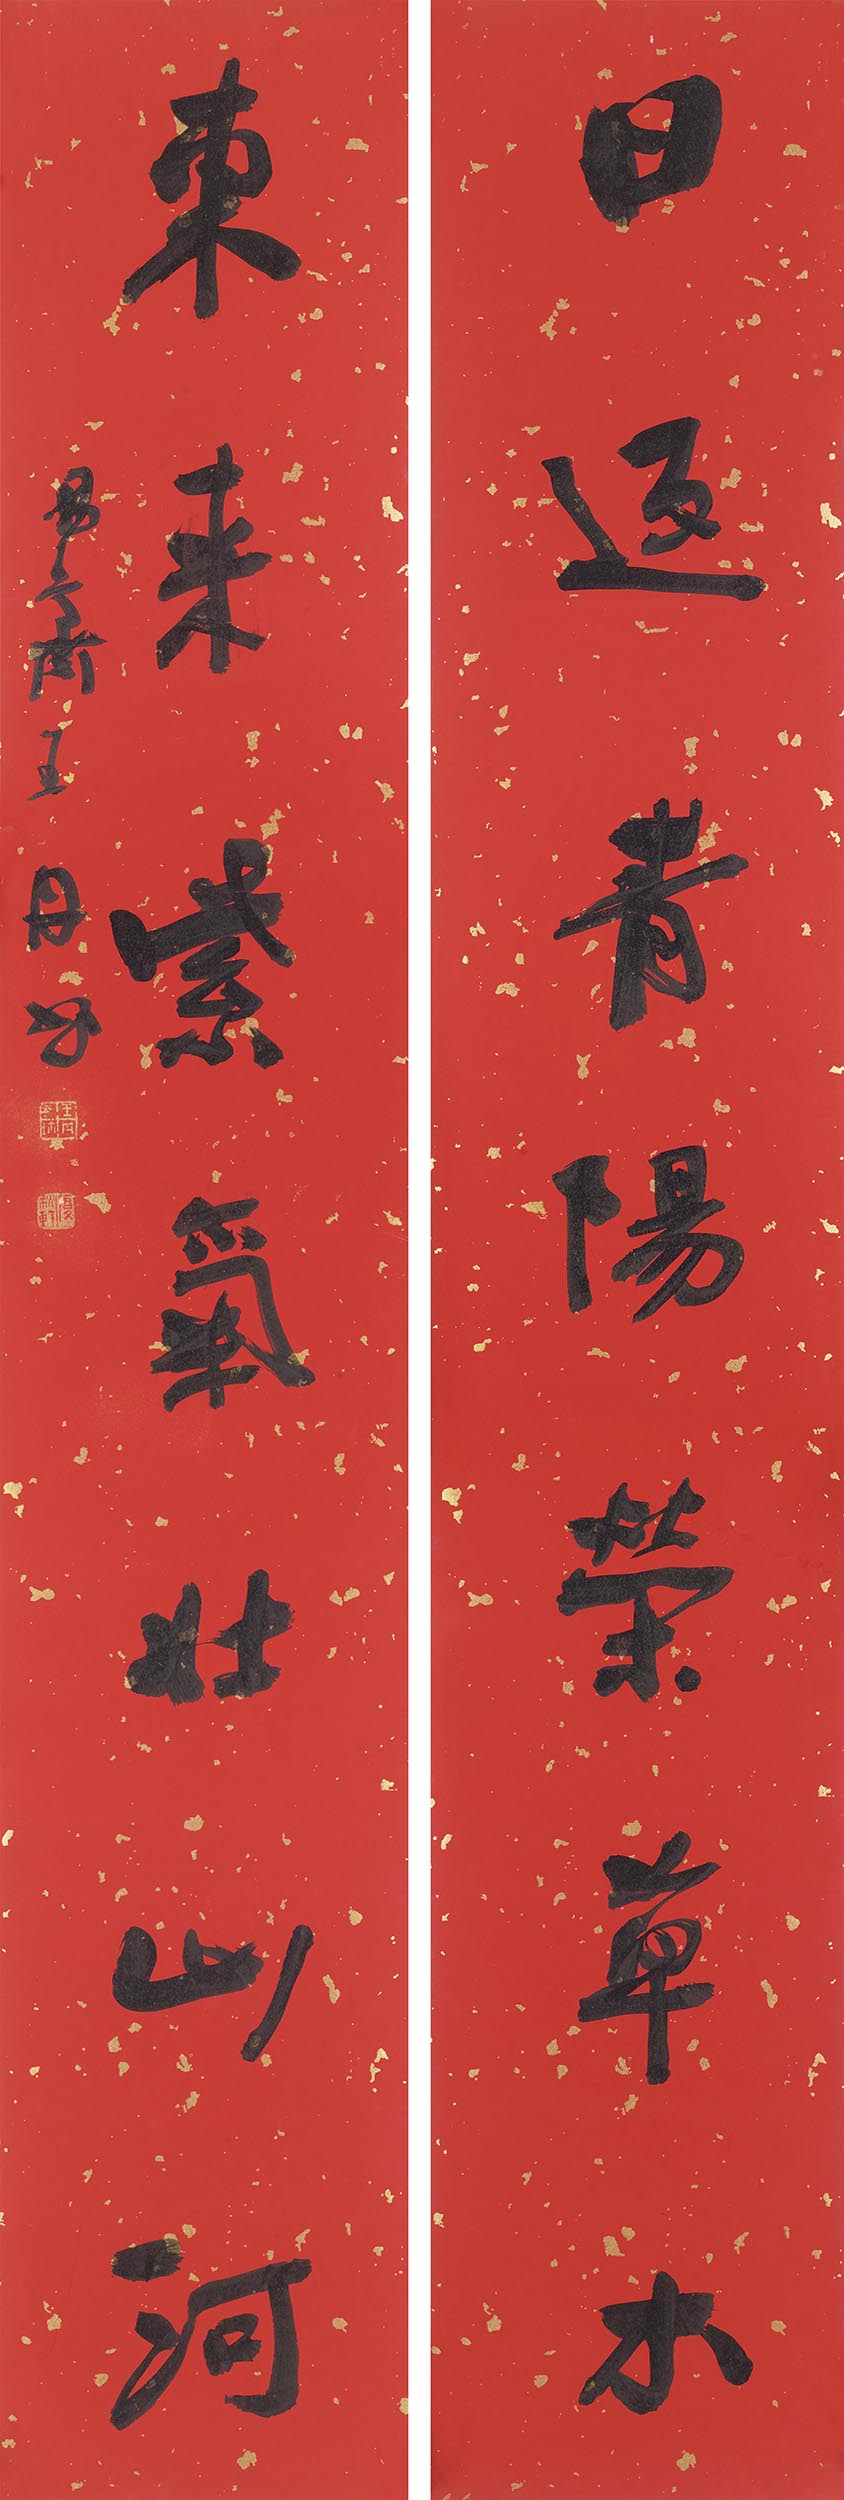 日返青陽榮草木
東來紫氣壯山河
王丹